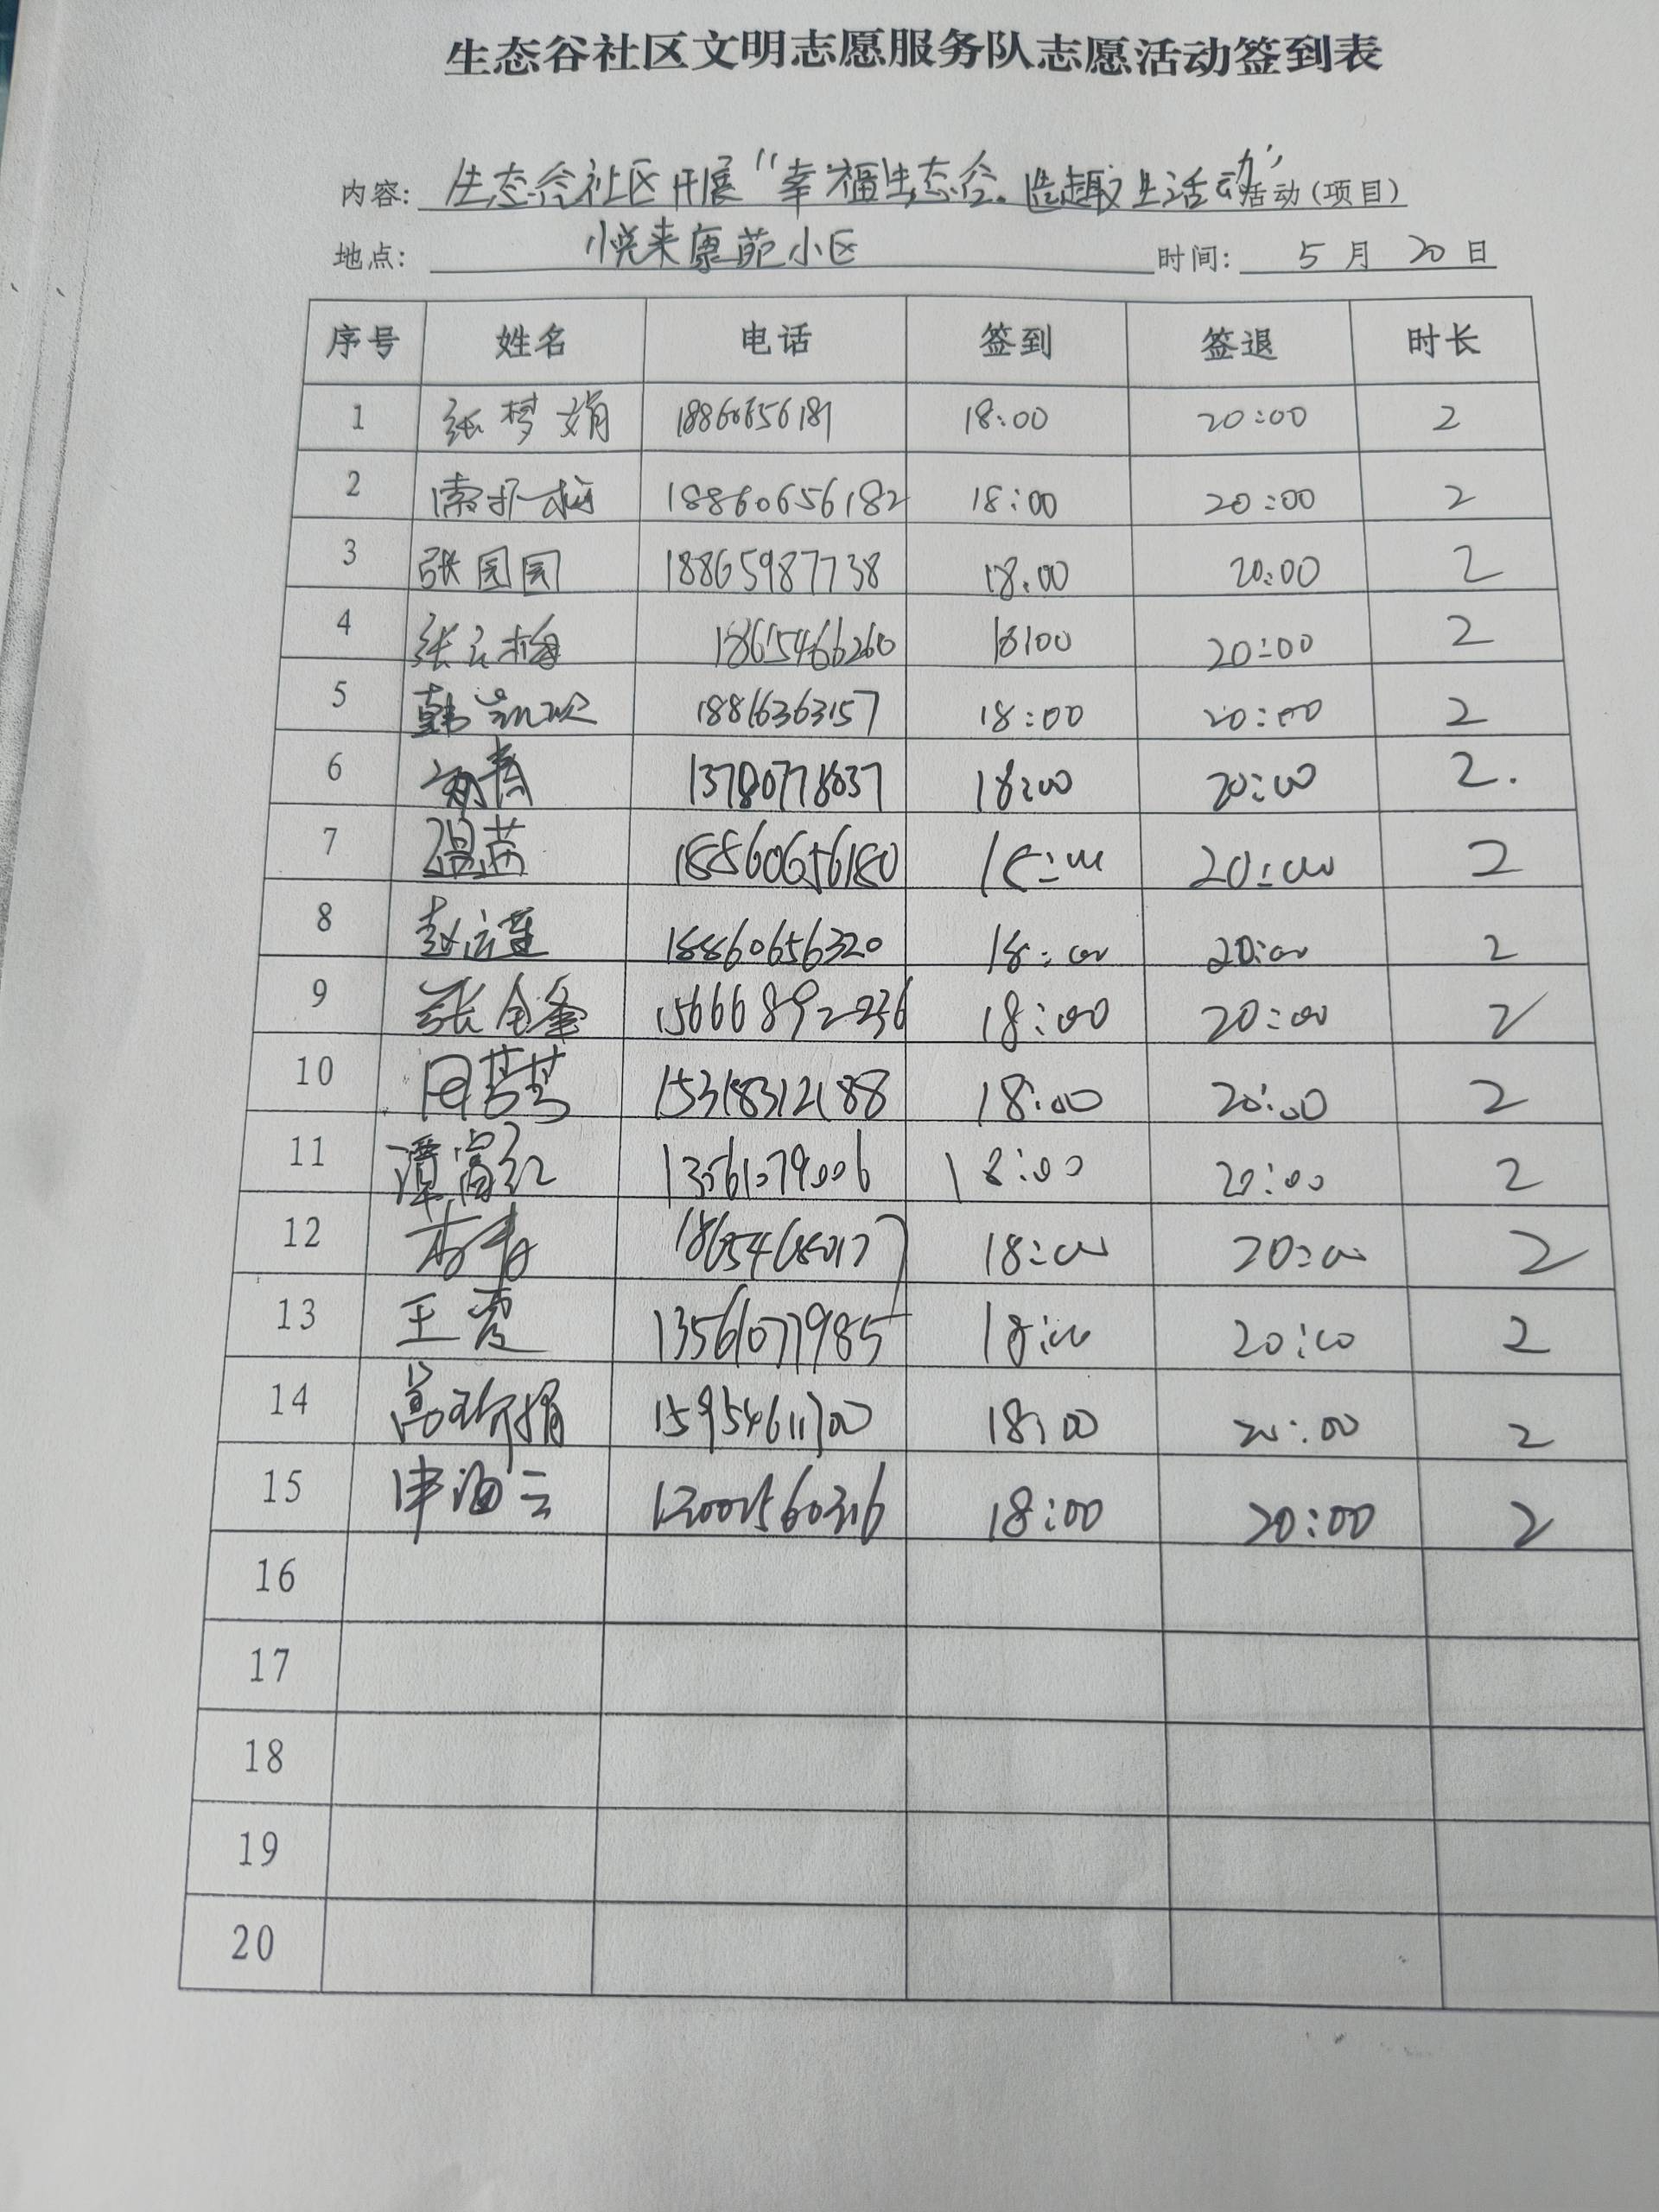 生态谷社区文明志愿服务队志愿活动签到表
内容: 生态谷社区开展“幸福生态谷.造趣生活动力”活动(项目)
地点: 悦来康苑小区 时间: 5月20日
序号 姓名 电话 签到 签退 时长
1 张梦娟 18860656181 18:00 20:00 2
2 18860656182 18:00 20:00 2
3 张园园 18865987738 18:00 20:00 2
4 张云梅 18615466260 18:00 20:00 2
5 韩 18816363157 18:00 20:00 2
6 13780778037 18:00 20:00 2.
7 温芮 18860656180 18:00 20:00 2
8 赵运莲 18860656320 18:00 20:00 2
9 张金峰 15666892236 18:00 20:00 2
10 田梦梦 15318312188 18:00 20:00 2
11 谭富红 13561079006 18:00 20:00 2
12 18:00 20:00 2
13 王霞 13561077985 18:00 20:00 2
14 高珍娟 15954611700 18:00 20:00 2
15 申海云 18:00 20:00 2
16
17
18
19
20